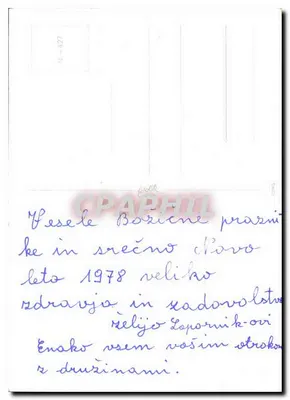 Vesele Božične prazni
ke in srečno Novo
leto 1978 veliko
zdravja in zadovolstva
želijo Lapornik-ovi
Enako vsem vašim otrokom
z družinami.